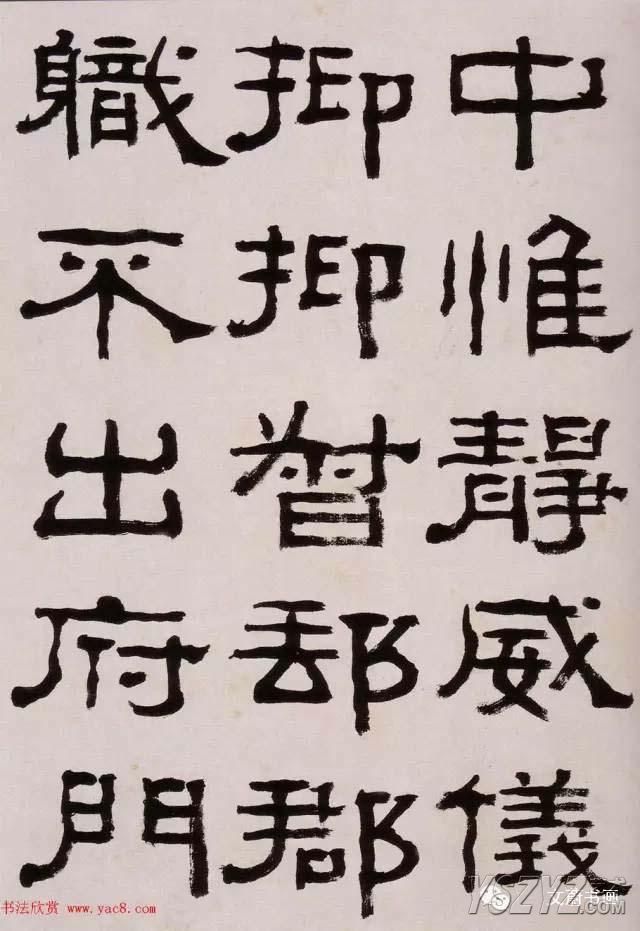 中惟靜威儀
抑抑督郵郡
軄不出府門
书法欣赏 www.yac8.com
YSZYZ.COM